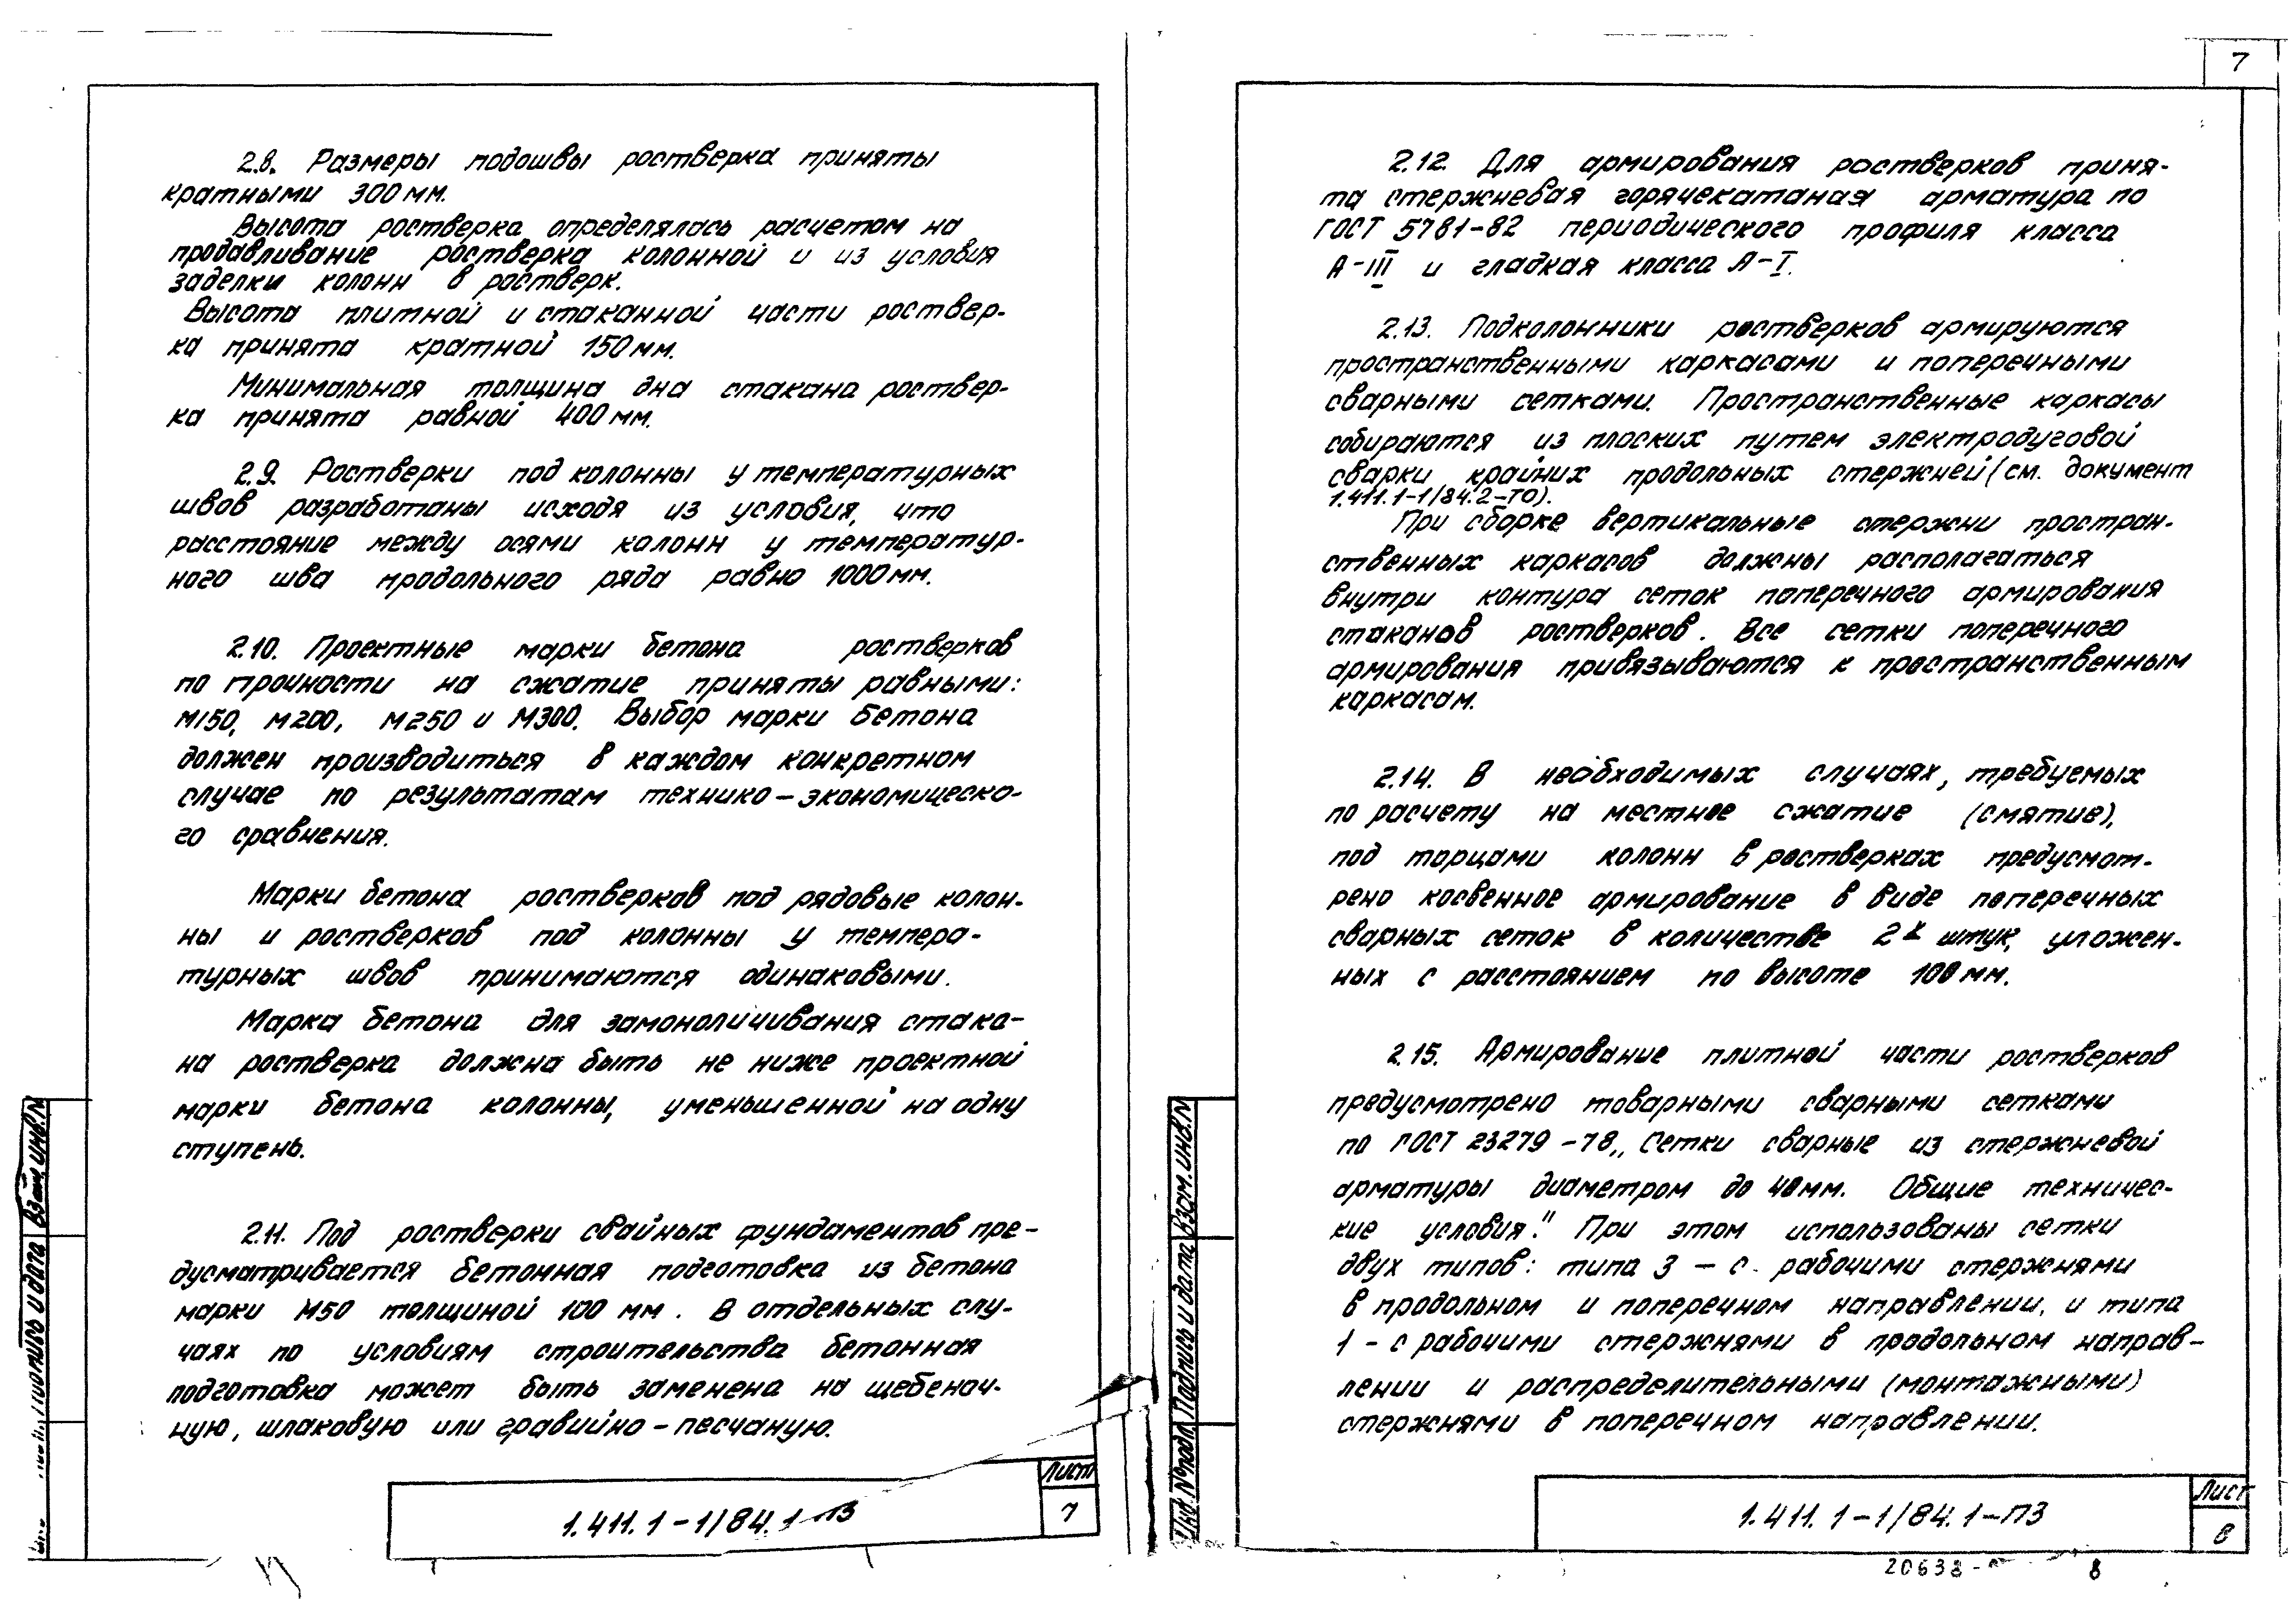 2.8. Размеры подошвы ростверка приняты
кратными 300 мм.
Высота ростверка определялась расчетом на
продавливание ростверка колонной и из условия
заделки колонн в ростверк.
Высота плитной и стаканной части роствер-
ка принята кратной 150 мм.
Минимальная толщина дна стакана роствер-
ка принята равной 400 мм.
2.9. Ростверки под колонны у температурных
швов разработаны исходя из условия, что
расстояние между осями колонн у температур-
ного шва продольного ряда равно 1000 мм.
2.10. Проектные марки бетона ростверков
по прочности на сжатие приняты равными:
М150, М200, М250 и М300. Выбор марки бетона
должен производиться в каждом конкретном
случае по результатам технико-экономическо-
го сравнения.
Марки бетона ростверков под рядовые колон-
ны и ростверков под колонны у темпера-
турных швов принимаются одинаковыми.
Марка бетона для замоноличивания стака-
на ростверка должна быть не ниже проектной
марки бетона колонны, уменьшенной на одну
ступень.
2.11. Под ростверки свайных фундаментов пре-
дусматривается бетонная подготовка из бетона
марки М50 толщиной 100 мм. В отдельных слу-
чаях по условиям строительства бетонная
подготовка может быть заменена на щебеноч-
ную, шлаковую или гравийно-песчаную.
1.411.1-1/84.1-ПЗ
Лист
7
Взам. инв. N
Подпись и дата
7
2.12. Для армирования ростверков приня-
та стержневая горячекатаная арматура по
ГОСТ 5781-82 периодического профиля класса
А-III и гладкая класса А-I.
2.13. Подколонники ростверков армируются
пространственными каркасами и поперечными
сварными сетками. Пространственные каркасы
собираются из плоских путем электродуговой
сварки крайних продольных стержней (см. документ
1.411.1-1/84.2-ТО).
При сборке вертикальные стержни простран-
ственных каркасов должны располагаться
внутри контура сеток поперечного армирования
стаканов ростверков. Все сетки поперечного
армирования привязываются к пространственным
каркасам.
2.14. В необходимых случаях, требуемых
по расчету на местное сжатие (смятие),
под торцами колонн в ростверках предусмот-
рено косвенное армирование в виде поперечных
сварных сеток в количестве 2х штук, уложен-
ных с расстоянием по высоте 100 мм.
2.15. Армирование плитной части ростверков
предусмотрено товарными сварными сетками
по ГОСТ 23279-78 „Сетки сварные из стержневой
арматуры диаметром до 40 мм. Общие техничес-
кие условия." При этом использованы сетки
двух типов: типа 3 - с рабочими стержнями
в продольном и поперечном направлении, и типа
1 - с рабочими стержнями в продольном направ-
лении и распределительными (монтажными)
стержнями в поперечном направлении.
Инв. № подл. Подпись и дата Взам. инв. N
1.411.1-1/84.1-ПЗ
Лист
8
20638-
8